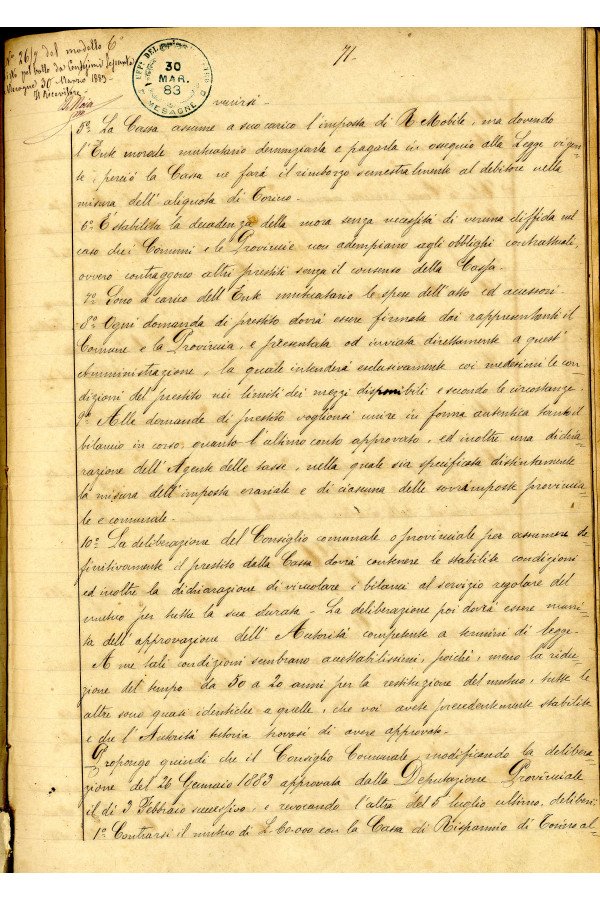 N° 26/7 del modello 6°
Mesagne 30 Marzo 1883 -
Il Ricevitore
71.
30
MAR.
83
MESAGNE
venirsi -
5° La Cassa assume a suo carico l'imposta di R. Mobile, ma dovendo
l'Ente morale mutuatario denunziarla e pagarla in ossequio alla Legge vigen-
te, perciò la Cassa ne farà il rimborzo semestralmente al debitore nella
misura dell'aliquota di Torino.
6° È stabilita la decadenza della mora senza necessità di veruna diffida nel
caso che i Comuni e le Provincie non adempiano agli obblighi contrattuali,
ovvero contraggono altri prestiti senza il consenso della Cassa.
7° Sono a carico dell'Ente mutuatario le spese dell'atto ed acessori.
8° Ogni domanda di prestito dovrà essere firmata dai rappresentanti il
Comune e la Provincia, e presentata od inviata direttamente a quest'
Amministrazione, la quale intenderà esclusivamente coi medesimi le con-
dizioni del prestito nei limiti dei mezzi disponibili e secondo le circostanze.
9° Alle domande di prestito voglionsi unire in forma autentica tanto il
bilancio in corso, quanto l'ultimo conto approvato, ed inoltre una dichia-
razione dell'Agente delle tasse, nella quale sia specificata distintamente
la misura dell'imposta erariale e di ciascuna delle sovrimposte provincia-
le e comunale.
10° La deliberazione del Consiglio comunale o provinciale per assumere de
finitivamente il prestito dalla Cassa dovrà contenere le stabilite condizioni
ed inoltre la dichiarazione di vincolare i bilanci al servizio regolare del
mutuo per tutta la sua durata - La deliberazione poi dovrà essere muni-
ta dell'approvazione dell'Autorità competente a termini di legge.
A me tali condizioni sembrano accettabilissimi, poichè, meno la ridu-
zione del tempo da 50 a 20 anni per la restituzione del mutuo, tutte le
altre sono quasi identiche a quelle, che voi avete precedentemente stabilite
e che l'Autorità tutoria trovasi di avere approvate.
Propongo quindi che il Consiglio Comunale, modificando la delibera-
zione del 26 Gennaio 1883 approvata dalla Deputazione Provinciale
il dì 3 Febbraio successivo, e revocando l'altra del 5 luglio ultimo, deliberi:
1° Contrarsi il mutuo di L. 60.000 con la Cassa di Risparmio di Torino al-